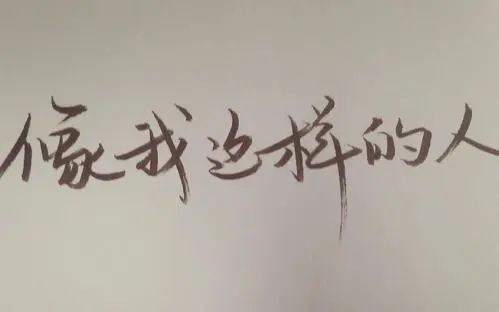 像我这样的人